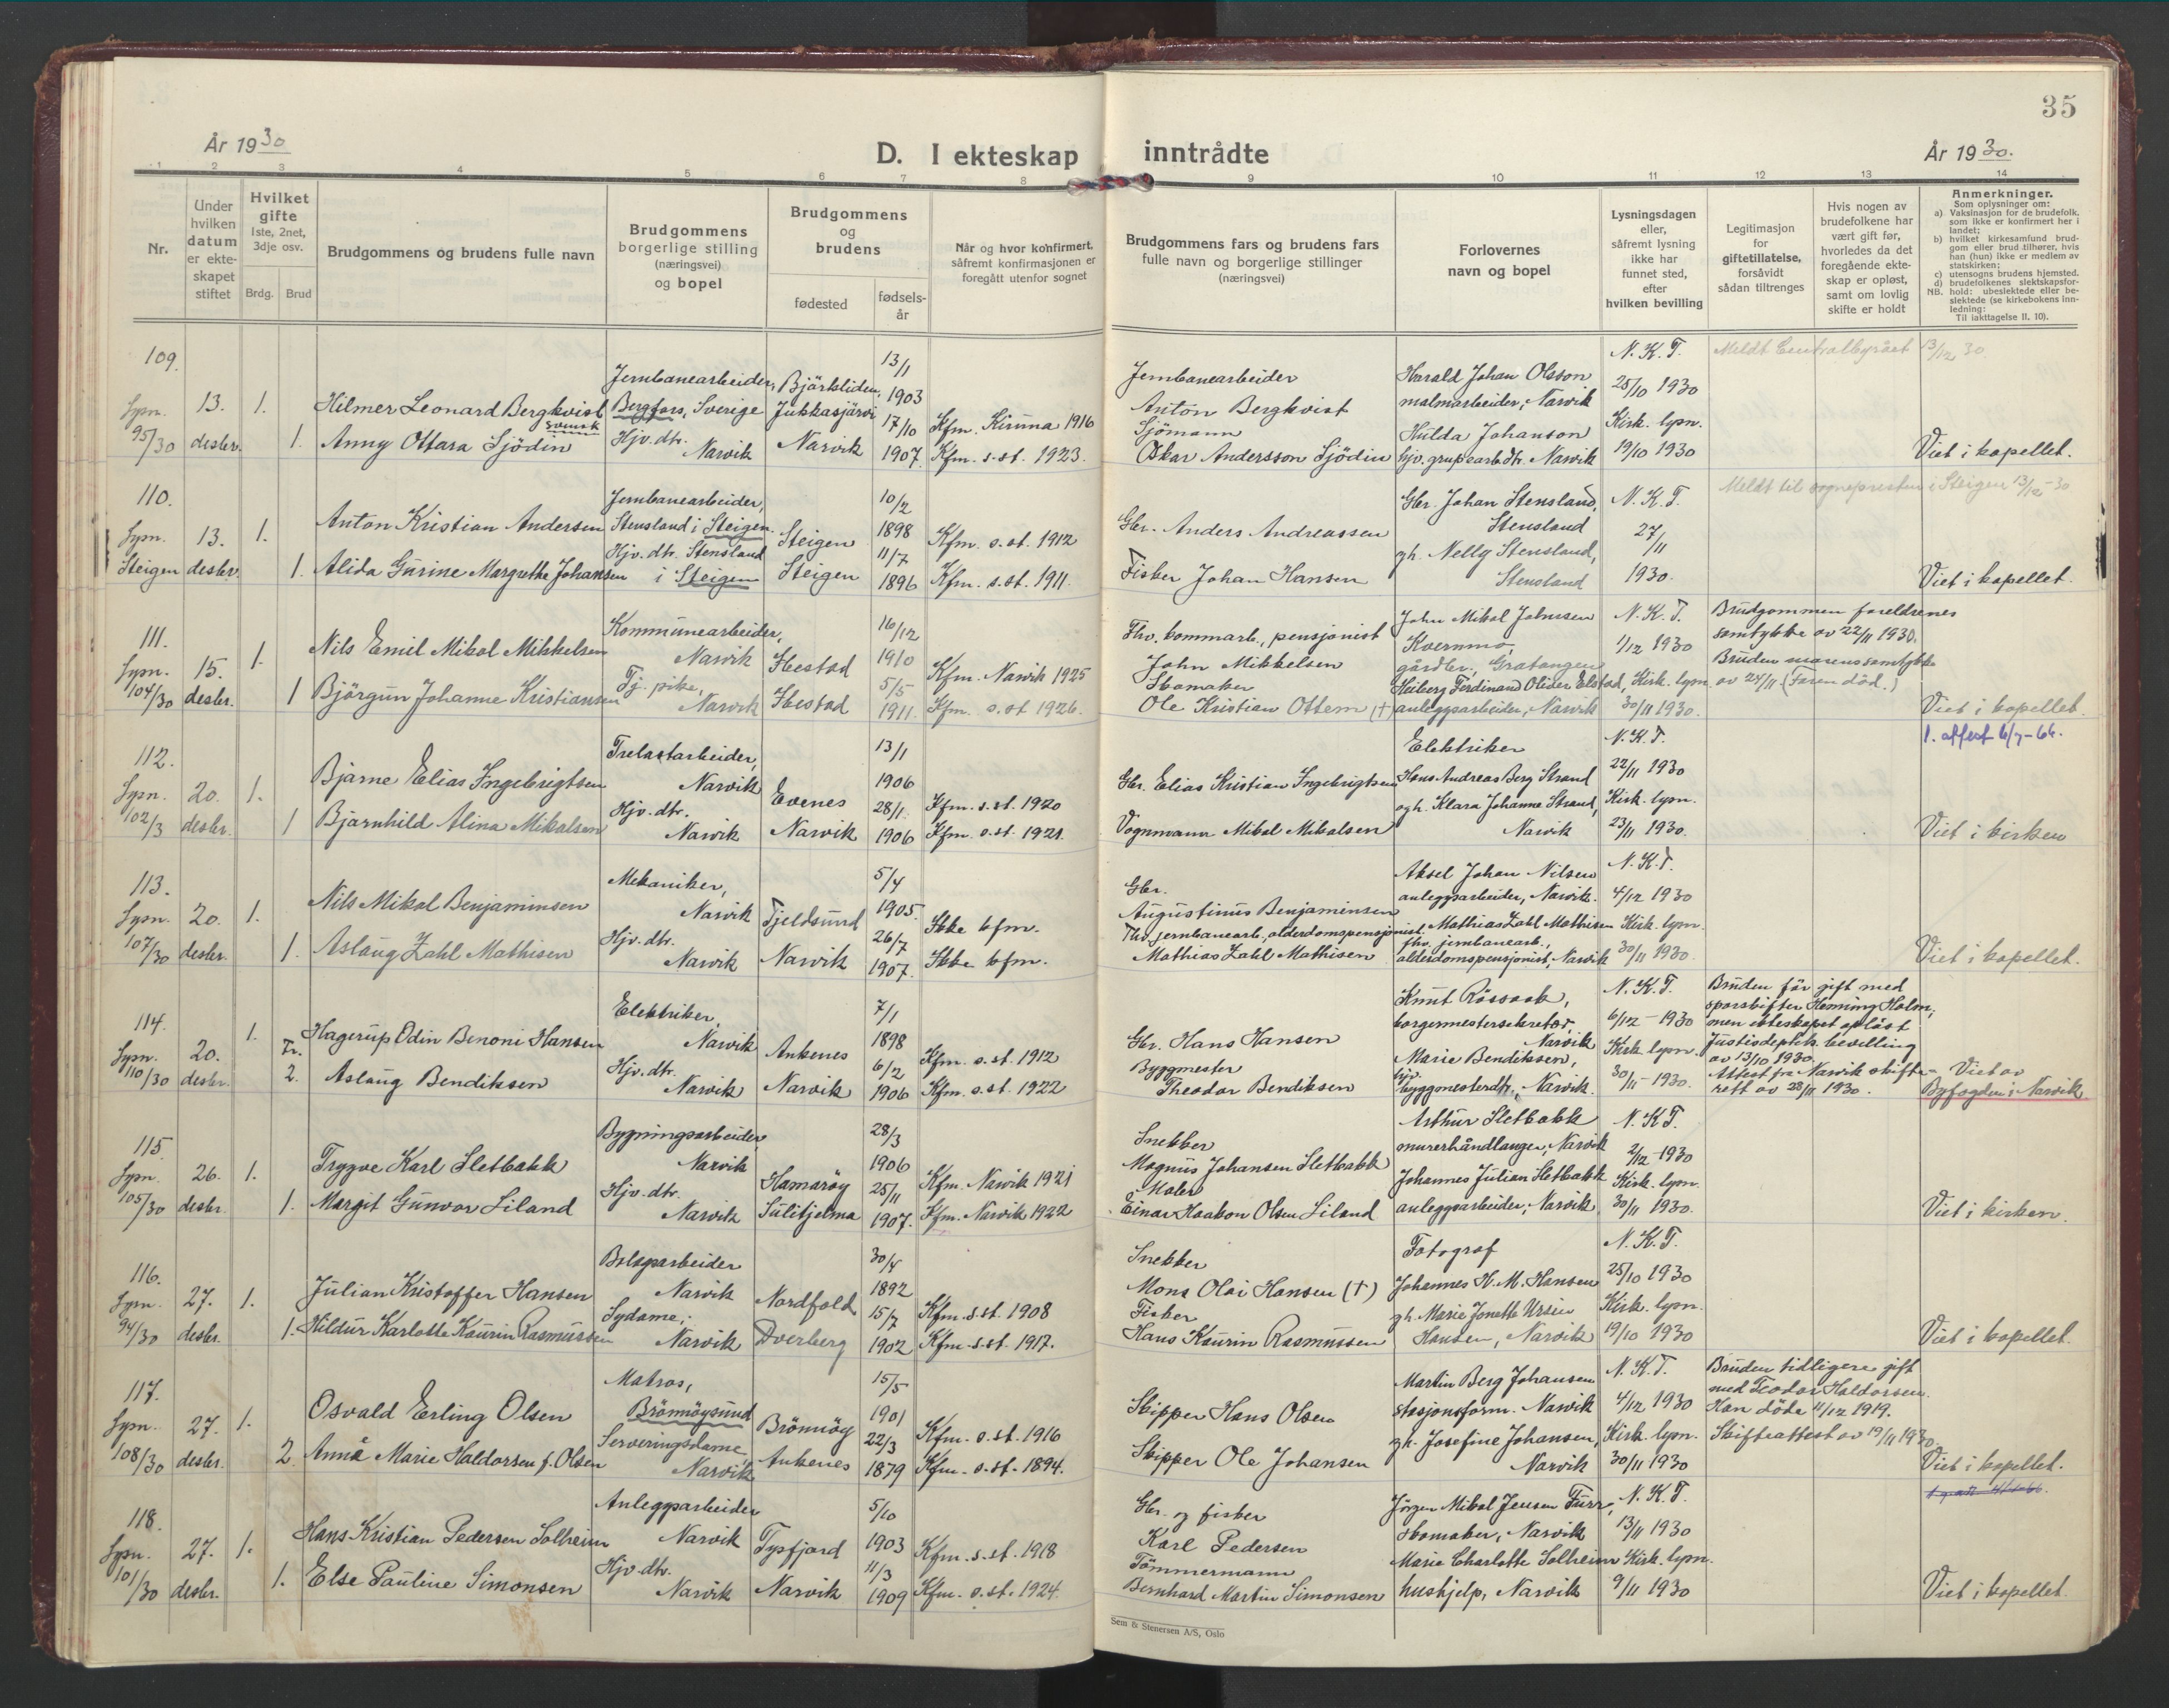 35
År 1930
D. I ekteskap inntrådte
År 1930.
1 2 3 4 5 6 7 8 9 10 11 12 13 14
Nr.
Under hvilken datum er ekteskapet stiftet
Hvilket gifte 1ste, 2net, 3dje osv.
Brdg. Brud
Brudgommens og brudens fulle navn
Brudgommens borgerlige stilling (næringsvei) og bopel
Brudgommens og brudens
fødested
fødselsår
Når og hvor konfirmert, såfremt konfirmasjonen er foregått utenfor sognet
Brudgommens fars og brudens fars fulle navn og borgerlige stillinger (næringsvei)
Forlovernes navn og bopel
Lysningsdagen eller, såfremt lysning ikke har funnet sted, efter hvilken bevilling
Legitimasjon for giftetillatelse, forsåvidt sådan tiltrenges
Hvis nogen av brudefolkene har vært gift før, hvorledes da det foregående ekteskap er opløst, samt om lovlig skifte er holdt
Anmerkninger.
Som oplysninger om:
a) Vaksinasjon for de brudefolk, som ikke er konfirmert her i landet;
b) hvilket kirkesamfund brudgom eller brud tilhører, hvis han (hun) ikke er medlem av statskirken;
c) utensogns brudens hjemsted.
d) brudefolkenes slektskapsforhold: ubeslektede eller beslektede (se kirkebokens innledning:
NB.
Til iakttagelse II, 10).
109. Lysn. 95/30
13. desbr.
1.
Hilmer Leonard Bergkvist
svensk
Jernbanearbeider, Bergfors, Sverige
Björkliden, Jukkasjärvi
13/1 1903
Kfm. Kiruna 1916
1. Anny Ottara Sjödin
Hjv. dtr. Narvik
Narvik
17/10 1907
Kfm. s. st. 1923.
Jernbanearbeider
Anton Bergkvist
Sjömann
Oskar Andersson Sjödin
Harald Johan Olsson
malmarbeider, Narvik
Hulda Johanson
hjv. grupearb.dtr. Narvik
N. K. T.
25/10 1930
Kirk. lysn.
19/10 1930
Meldt Centralbyrået 13/12 30
Viet i kapellet.
110. Lysn. Steigen
13. desbr.
1.
Anton Kristian Andersen
Jernbanearbeider, Stensland i Steigen.
Steigen
10/2 1898
Kfm. s. st. 1912
1. Alida Gurine Margrethe Johansen
Hjv. dtr. Stensland i Steigen
Steigen
11/7 1896
Kfm. s. st. 1911.
Gbr. Anders Andreassen
Fisker Johan Hansen
Gbr. Johan Stensland,
Stensland
gh. Nelly Stensland,
Stensland
N. K. T.
27/11
1930.
Meldt til sognepresten i Steigen 13/12-30
Viet i kapellet.
111. Lysn. 104/30
15. desbr.
1.
Nils Emil Mikal Mikkelsen
Kommunearbeider, Narvik
Ibestad
16/12 1910
Kfm. Narvik 1925
1 Björgun Johanne Kristiansen
Tj. pike, Narvik
Ibestad
5/5 1911.
Kfm. s. st 1926.
Fhv. kommarb., pensjonist
John Mikkelsen
Skomaker
Ole Kristian Ottem (†)
John Mikal Johnsen
Kvernmo,
gårdbr., Gratangen
Heiberg Ferdinand Olider Elstad,
anleggsarbeider, Narvik
N. K. T.
1/12 1930
Kirk. lysn.
30/11 1930.
Brudgommen foreldrenes
samtykke av 22/11 1930.
Bruden morens samtykke
av 24/11 (Faren död.)
Viet i kapellet.
1. attest 6/7-66.
112. Lysn. 102/3
20. desbr.
1.
Bjarne Elias Ingebrigtsen
Trelastarbeider, Narvik
Evenes
13/1 1906
Kfm. s. st. 1920
1 Bjarnhild Alina Mikalsen
Hjv. dtr. Narvik
Narvik
28/1 1906
Kfm. s. st. 1921.
Gbr. Elias Kristian Ingebrigtsen
Vognmann Mikal Mikalsen
Elektriker
Hans Andreas Berg Strand
og h. Klara Johanne Strand,
Narvik
N. K. T.
22/11 1930
Kirk. lysn.
23/11 1930.
Viet i kirken
113. Lysn. 107/30
20. desbr.
1.
Nils Mikal Benjaminsen
Mekaniker, Narvik
Tjeldsund
5/4 1905.
Ikke kfm.
1. Aslaug Zahl Mathisen
Hjv. dtr. Narvik
Narvik
26/7 1907.
Ikke kfm.
Gbr.
Augustinus Benjaminsen
Fhv. jernbanearb., alderdomspensjonist
Mathias Zahl Mathisen
Aksel Johan Nilsen
anleggsarbeider, Narvik.
Mathias Zahl Mathisen
fhv. jernbanearb.,
alderdomspensjonist, Narvik
N. K. T.
4/12 1930
Kirk. lysn.
30/11 1930.
Viet i kapellet.
114. Lysn. 110/30
20. desbr.
1.
Fr. 2.
Hagerup Odin Benoni Hansen
Elektriker, Narvik
Ankenes
7/1 1898
Kfm. s. st. 1912
Aslaug Bendiksen
Hjv. dtr. Narvik
Narvik
6/2 1906
Kfm. s. st. 1922
Gbr. Hans Hansen
Byggmester
Theodor Bendiksen
Knut Rössaak,
borgermestersekretær,
Narvik
Marie Bendiksen,
hjv.
byggmesterdtr., Narvik.
N. K. T.
6/12-1930
Kirk lysn.
30/11-1930.
Bruden för gift med
sporskifter Henning Holm,
men ekteskapet oplöst
Justisdeptets bevilling
av 13/10 1930.
Attest fra Narvik skifte-
rett av 28/11 1930.
Viet av
Byfogden i Narvik
115. Lysn. 105/30
26. desbr.
1.
Trygve Karl Sletbakk
Bygningsarbeider, Narvik
Hamaröy
28/3 1906
Kfm. Narvik 1921
1. Margit Gunvor Liland
Hjv. dtr. Narvik
Sulitjelma
25/11 1907.
Kfm. Narvik 1922
Snekker
Magnus Johansen Sletbakk
Maler
Einar Haakon Olsen Liland
Arthur Sletbakk
murerhåndlanger, Narvik
Johannes Julian Sletbakk
anleggsarbeider, Narvik
N. K. T.
2/12-1930
Kirk. lysn.
30/11 1930.
Viet i kirken.
116. Lysn. 94/30
27. desbr.
1.
Julian Kristoffer Hansen
Bolagsarbeider Narvik
Nordfold
30/4 1892
Kfm. s. st. 1908
1. Hildur Karlotte Kaurin Rasmussen
Sydame, Narvik
Dverberg
15/7 1902
Kfm. s. st. 1917.
Snekker
Mons Olai Hansen (†)
Fisker
Hans Kaurin Rasmussen
Fotograf
Johannes H. M. Hansen
gh. Marie Jonette Ursin
Hansen, Narvik
N. K. T.
25/10 1930
Kirk. lysn.
19/10 1930
Viet i kapellet.
117. Lysn. 108/30
27. desbr.
1.
Osvald Erling Olsen
Matros, Brönnöysund
Brönnöy
15/5 1901
Kfm. s. st. 1916
2. Anna Marie Haldorsen f. Olsen
Serveringsdame, Narvik
Ankenes
22/3 1879
Kfm. s. st. 1894.
Skipper Hans Olsen
Skipper Ole Johansen
Martin Berg Johansen
stasjonsform. Narvik
gh. Josefine Johansen,
Narvik
N. K. T.
4/12 1930
Kirk. lysn.
30/11 1930
Bruden tidligere gift
med Teodor Haldorsen.
Han döde 11/12 1919.
Skifteattest av 19/11 1930.
Viet i kapellet.
118. Lysn. 101/30
27. desbr.
1.
Hans Kristian Pedersen Solheim
Anleggsarbeider Narvik
Tysfjord
5/10 1903
Kfm. s. st. 1918
1. Else Pauline Simonsen
Hjv. dtr. Narvik
Narvik
11/3 1909
Kfm. s. st. 1924.
Gbr. og fisker
Karl Pedersen
Tömmermann
Bernhard Martin Simonsen
Jörgen Mikal Jensen Furr,
skomaker, Narvik
Marie Charlotte Solheim
hushjelp, Narvik
N. K. T.
13/11 1930
Kirk. lysn.
9/11 1930
Viet i kapellet.
Sem & Stenersen A/S, Oslo